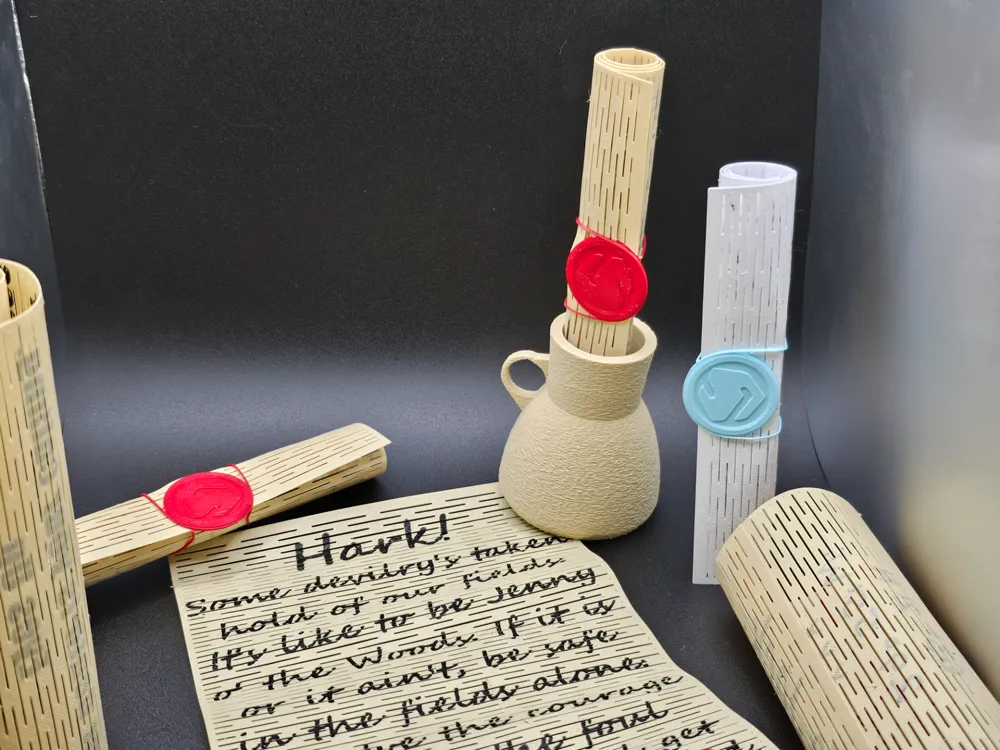 Hark!
Some devilry's taken
hold of our fields.
It's like to be Jenny
o' the Woods. If it is
or it ain't, be safe
in the fields alone.
the courage
foul
get